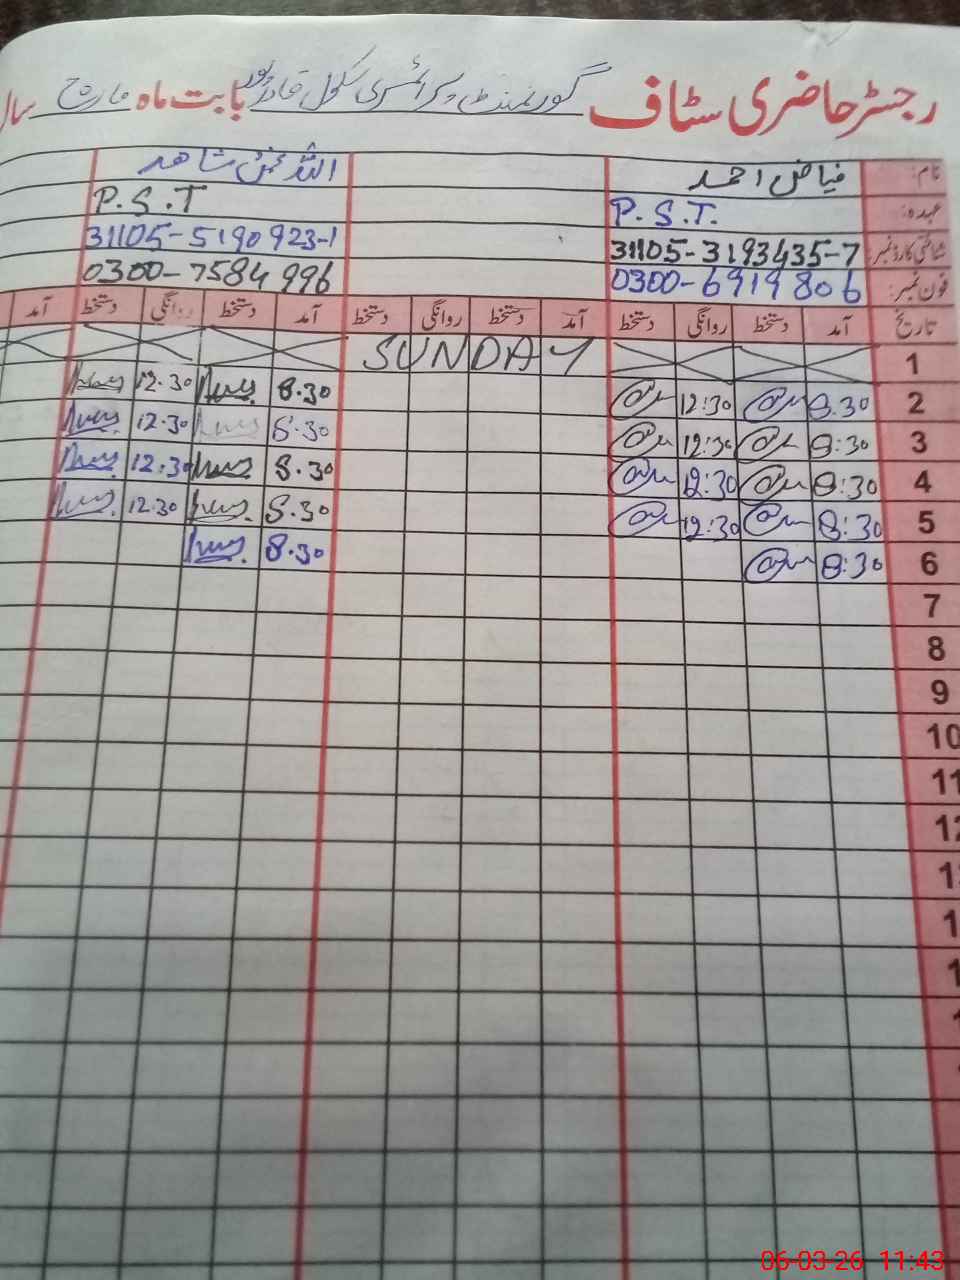 رجسٹر حاضری سٹاف گورنمنٹ پرائمری سکول قادرپور بابت ماہ مارچ سال
نام: فیاض احمد اللہ بخش شاھد
عہدہ: P.S.T. P.S.T
شناختی کارڈ نمبر: 31105-3193435-7 31105-5190923-1
فون نمبر: 0300-6919806 0300-7584996
تاریخ آمد دستخط روانگی دستخط آمد دستخط روانگی دستخط آمد دستخط روانگی دستخط آمد
1 SUNDAY
2 8.30 12:30 8.30 12.30
3 8:30 12:30 8.30 12.30
4 8:30 12:30 8.30 12.30
5 8:30 12:30 8.30 12.30
6 8:30 8.30
7
8
9
10
11
12
06-03-26 11:43